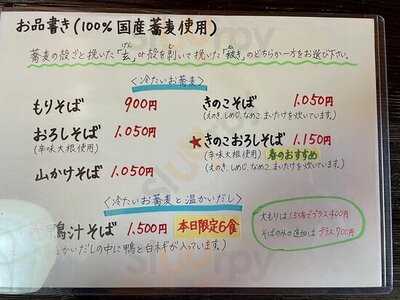 お品書き(100%国産蕎麦使用)
蕎麦の殻ごと挽いた「玄」or殻を剥いて挽いた「抜き」のどちらか一方をお選び下さい。
〈冷たいお蕎麦〉
もりそば 900円
おろしそば 1,050円
(辛味大根使用)
山かけそば 1,050円
きのこそば 1,050円
(えのき、しめじ、なめこ、まいたけを炊いています。)
★きのこおろしそば 1,150円
(辛味大根使用) 春のおすすめ
(えのき、しめじ、なめこ、まいたけを炊いています。)
〈冷たいお蕎麦と温かいだし〉
鴨汁そば 1,500円 本日限定6食
かいだしの中に鴨と白ネギが入っています。)
大もりは1.5倍でプラス400円
そばのみの追加は プラス700円